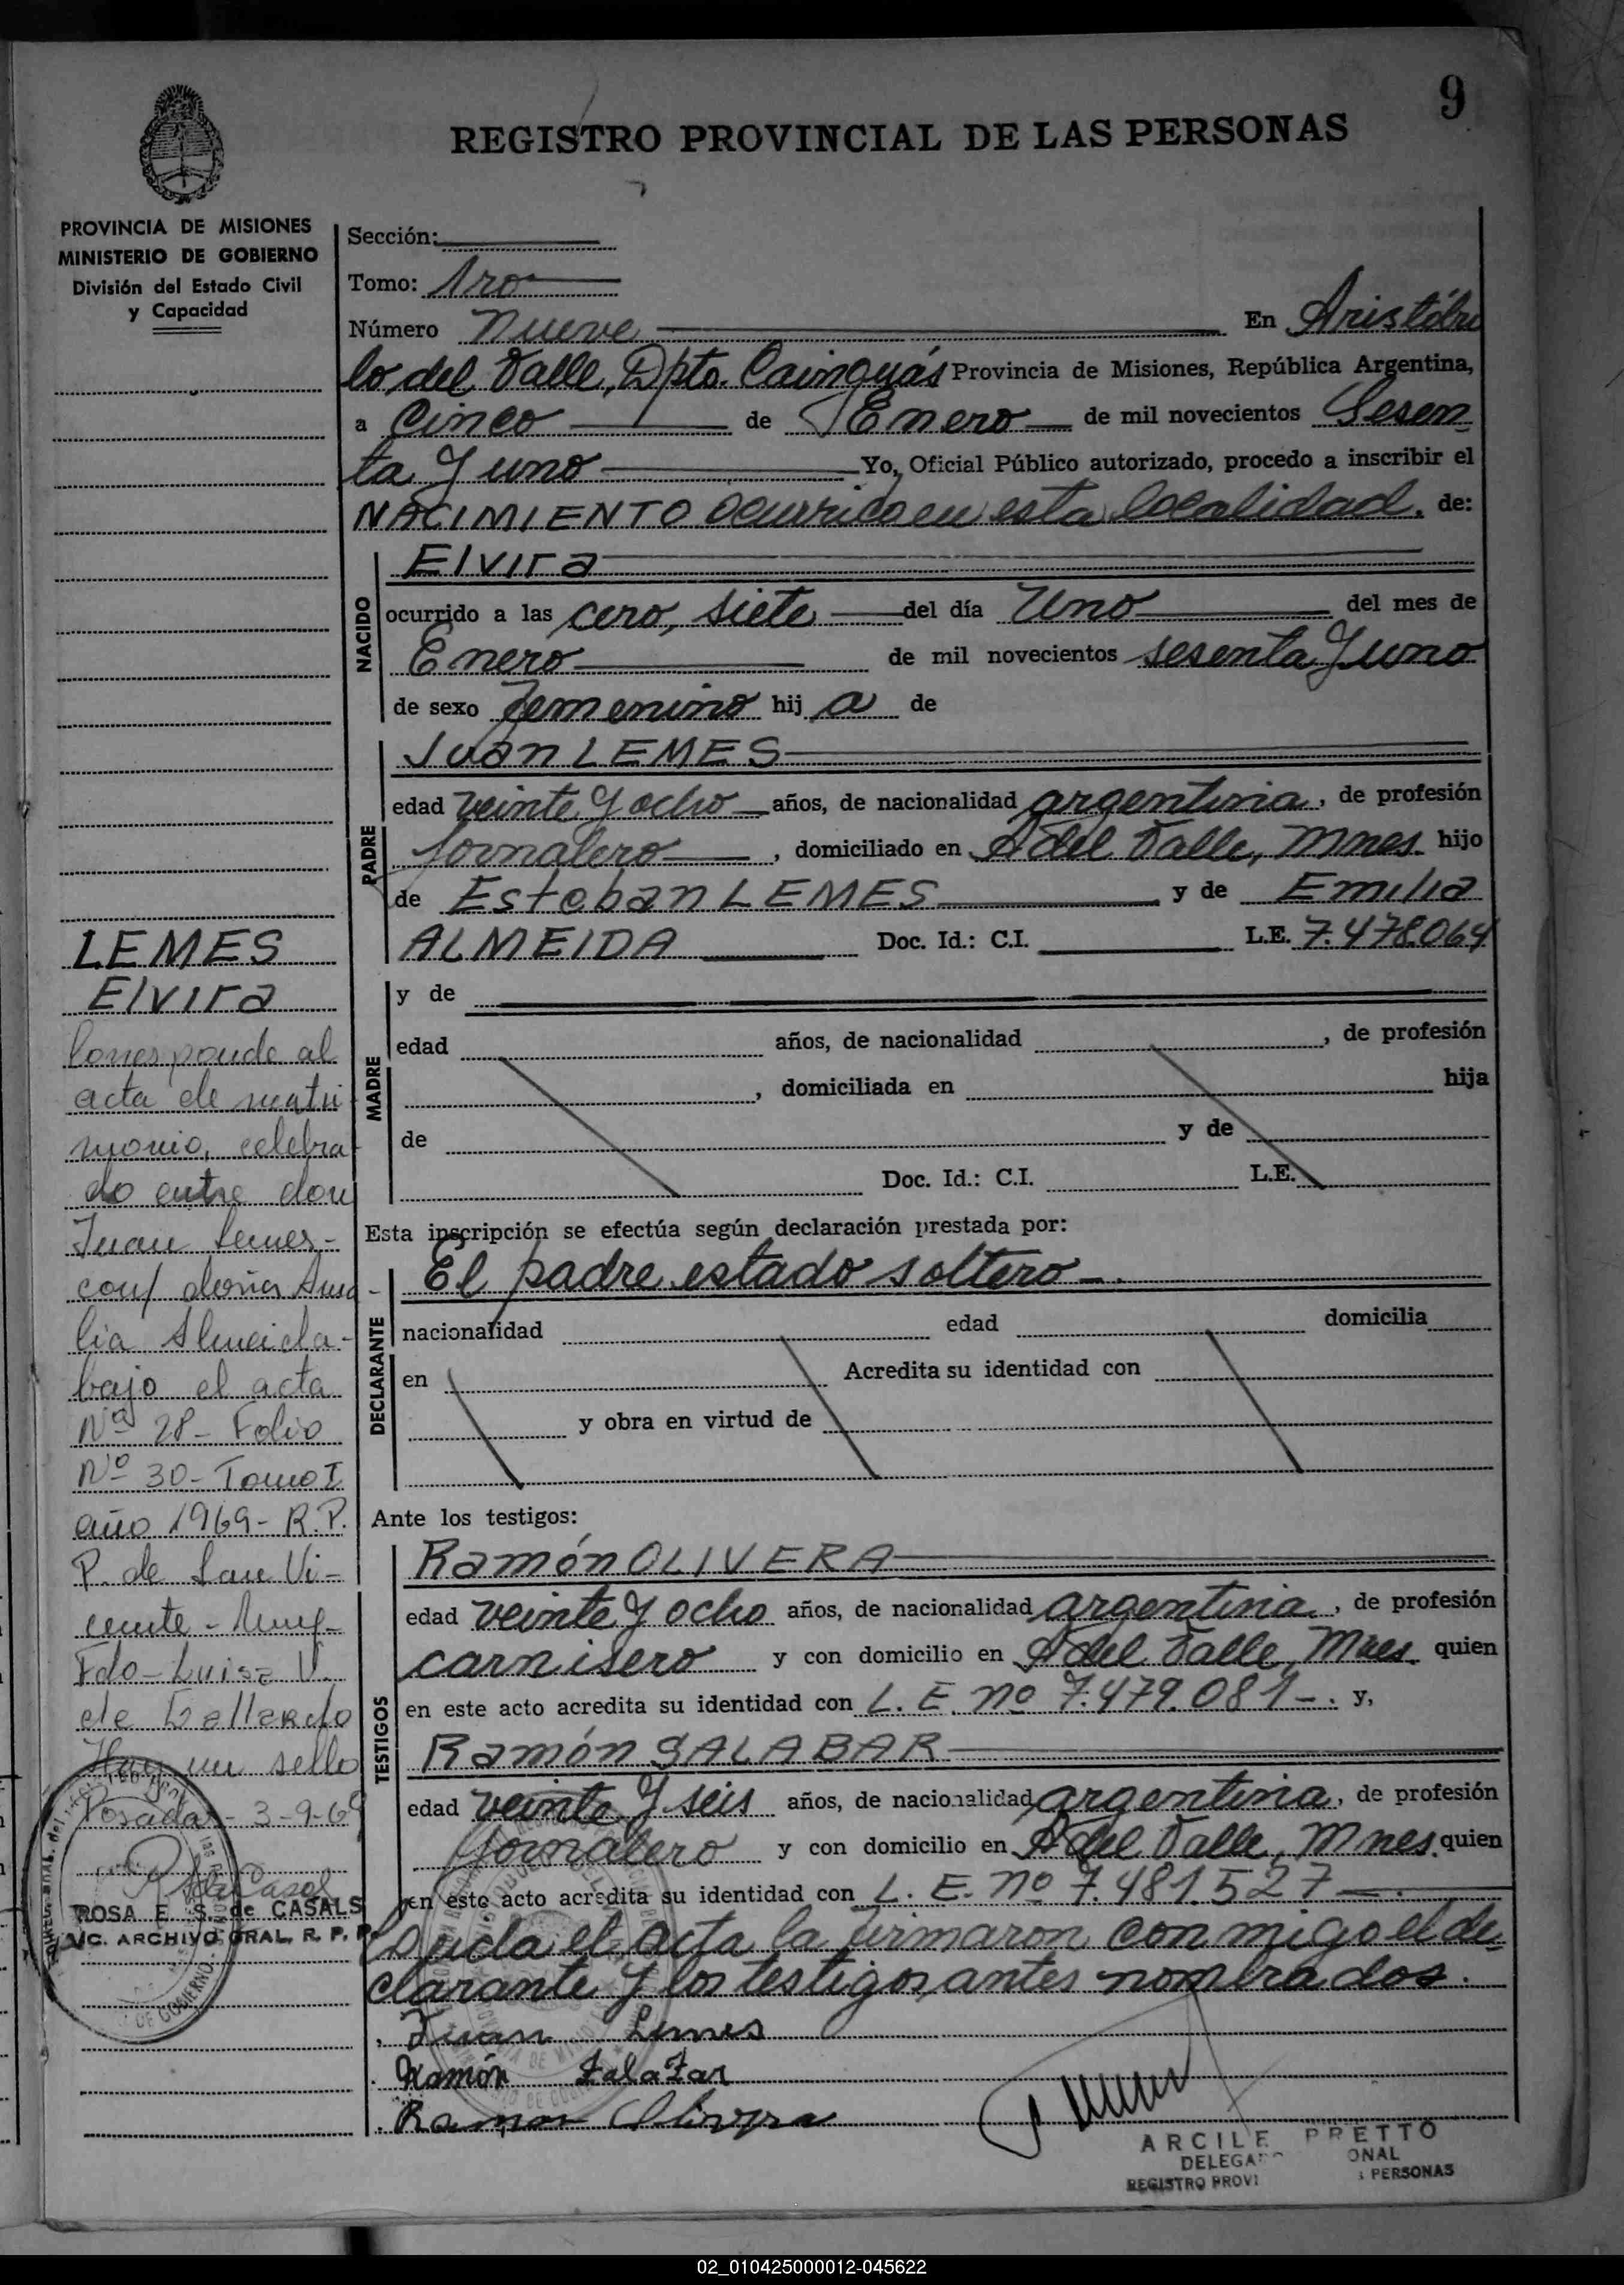 9
REGISTRO PROVINCIAL DE LAS PERSONAS
PROVINCIA DE MISIONES
MINISTERIO DE GOBIERNO
División del Estado Civil
y Capacidad
Sección:
Tomo: 1ro
Número nueve En Aristóbu
lo del Valle, Dpto. Cainguás Provincia de Misiones, República Argentina,
a Cinco de Enero de mil novecientos Sesen
ta y uno Yo, Oficial Público autorizado, procedo a inscribir el
NACIMIENTO ocurrido en esta localidad, de:
NACIDO
Elvira
ocurrido a las cero, siete del día Uno del mes de
Enero de mil novecientos sesenta y uno
de sexo femenino hij a de
PADRE
Juan LEMES
edad veinte y ocho años, de nacionalidad argentina, de profesión
Jornalero, domiciliado en A del Valle, Mnes. hijo
de Esteban LEMES y de Emilia
ALMEIDA Doc. Id.: C.I. L.E. 7.478.064
MADRE
y de
edad años, de nacionalidad , de profesión
, domiciliada en hija
de y de
Doc. Id.: C.I. L.E.
Esta inscripción se efectúa según declaración prestada por:
DECLARANTE
El padre estado soltero-.
nacionalidad edad domicilia
en Acredita su identidad con
y obra en virtud de
Ante los testigos:
TESTIGOS
Ramón OLIVERA
edad veinte y ocho años, de nacionalidad argentina, de profesión
carnisero y con domicilio en A del Valle, Mnes. quien
en este acto acredita su identidad con L. E. nº 7.479.081-. y,
Ramón SALABAR
edad veinte y seis años, de nacionalidad argentina, de profesión
Jornalero y con domicilio en A del Valle, Mnes. quien
en este acto acredita su identidad con L. E. nº 7.481.527-.
Leída el acta la firmaron conmigo el de
clarante y los testigos antes nombrados.
Juan Lemes
Ramón Salazar
Ramon Olivera
ARCILE PRETTO
DELEGA ONAL
REGISTRO PROVI PERSONAS
LEMES
Elvira
Corresponde al
acta de matri
monio, celebra
do entre don
Juan Lemes-
con doña
lia Almeida-
bajo el acta
Nº 28- Folio
Nº 30- Tomo I
año 1969- R.P.
P. de San Vi-
cente-
Fdo- Luisa V.
de Gallardo
Hay un sello
Posadas- 3-9-69
ROSA E. S. de CASALS
ARCHIVO GRAL. R. P. P.
DE GOBIERNO
02_010425000012-045622